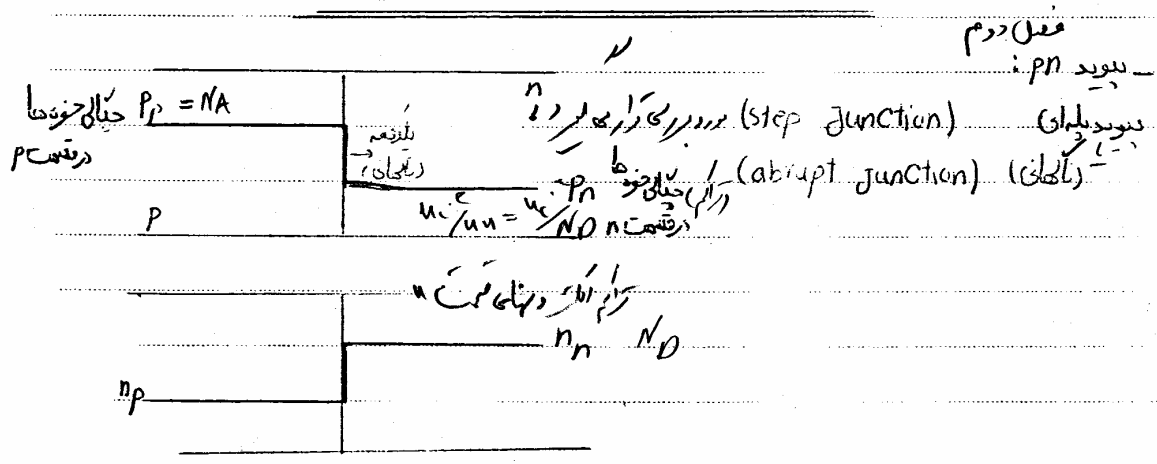 فصل دوم
_ پیوند pn :
پیوند پله‌ای (step Junction) مورد بررسی قرار می‌گیرد
یا (ناگهانی) (abrupt junction)
چگالی حفره‌ها Pp = NA
در قسمت p
یکدفعه (ناگهانی)
(تراکم) چگالی حفره‌ها Pn
در قسمت n
ni²/nn = ni²/ND
P
n
تراکم الکترونهای قسمت n
nn ND
np